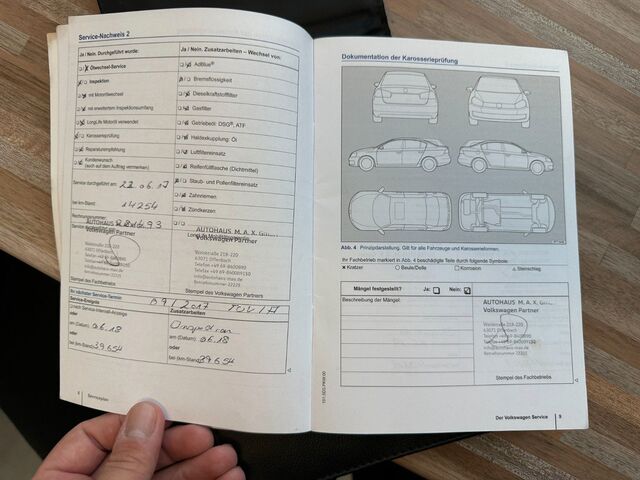 Service-Nachweis 2
Ja / Nein. Durchgeführt wurde:
Ölwechsel-Service
Inspektion
mit Motorölwechsel
mit erweitertem Inspektionsumfang
LongLife Motoröl verwendet
Karosserieprüfung
Reparaturempfehlung
Kundenwunsch
(auch auf dem Auftrag vermerken)
Service durchgeführt am: 22.06.17
bei km-Stand: 14254
Rechnungsnummer:
AUTOHAUS M. A. X.
Volkswagen Partner
Waldstraße 218-220
63071 Offenbach
Ja / Nein. Zusatzarbeiten – Wechsel von:
AdBlue®
Bremsflüssigkeit
Dieselkraftstofffilter
Gasfilter
Getriebeöl: DSG®, ATF
Haldexkupplung: Öl
Luftfiltereinsatz
Reifenfüllflasche (Dichtmittel)
Staub- und Pollenfiltereinsatz
Zahnriemen
Zündkerzen
AUTOHAUS M. A. X.
Volkswagen Partner
Waldstraße 218-220
63071 Offenbach
Stempel des Volkswagen Partners
Ihr nächster Service-Termin:
09/2017 TÜV
Service-Ereignis
oder
am (Datum): 06.18
oder
bei (km-Stand): 39.654
Zusatzarbeiten
Inspektion
am (Datum): 06.18
oder
bei (km-Stand): 39.654
Serviceplan
Dokumentation der Karosserieprüfung
Abb. 4 Prinzipdarstellung. Gilt für alle Fahrzeuge und Karosserieformen.
Ihr Fachbetrieb markiert in Abb. 4 beschädigte Teile durch folgende Symbole:
× Kratzer ○ Beule/Delle □ Korrosion △ Steinschlag
Mängel festgestellt? Ja: Nein:
Beschreibung der Mängel:
AUTOHAUS M. A. X.
Volkswagen Partner
Waldstraße 218-220
63071 Offenbach
Stempel des Fachbetriebs
Der Volkswagen Service 9